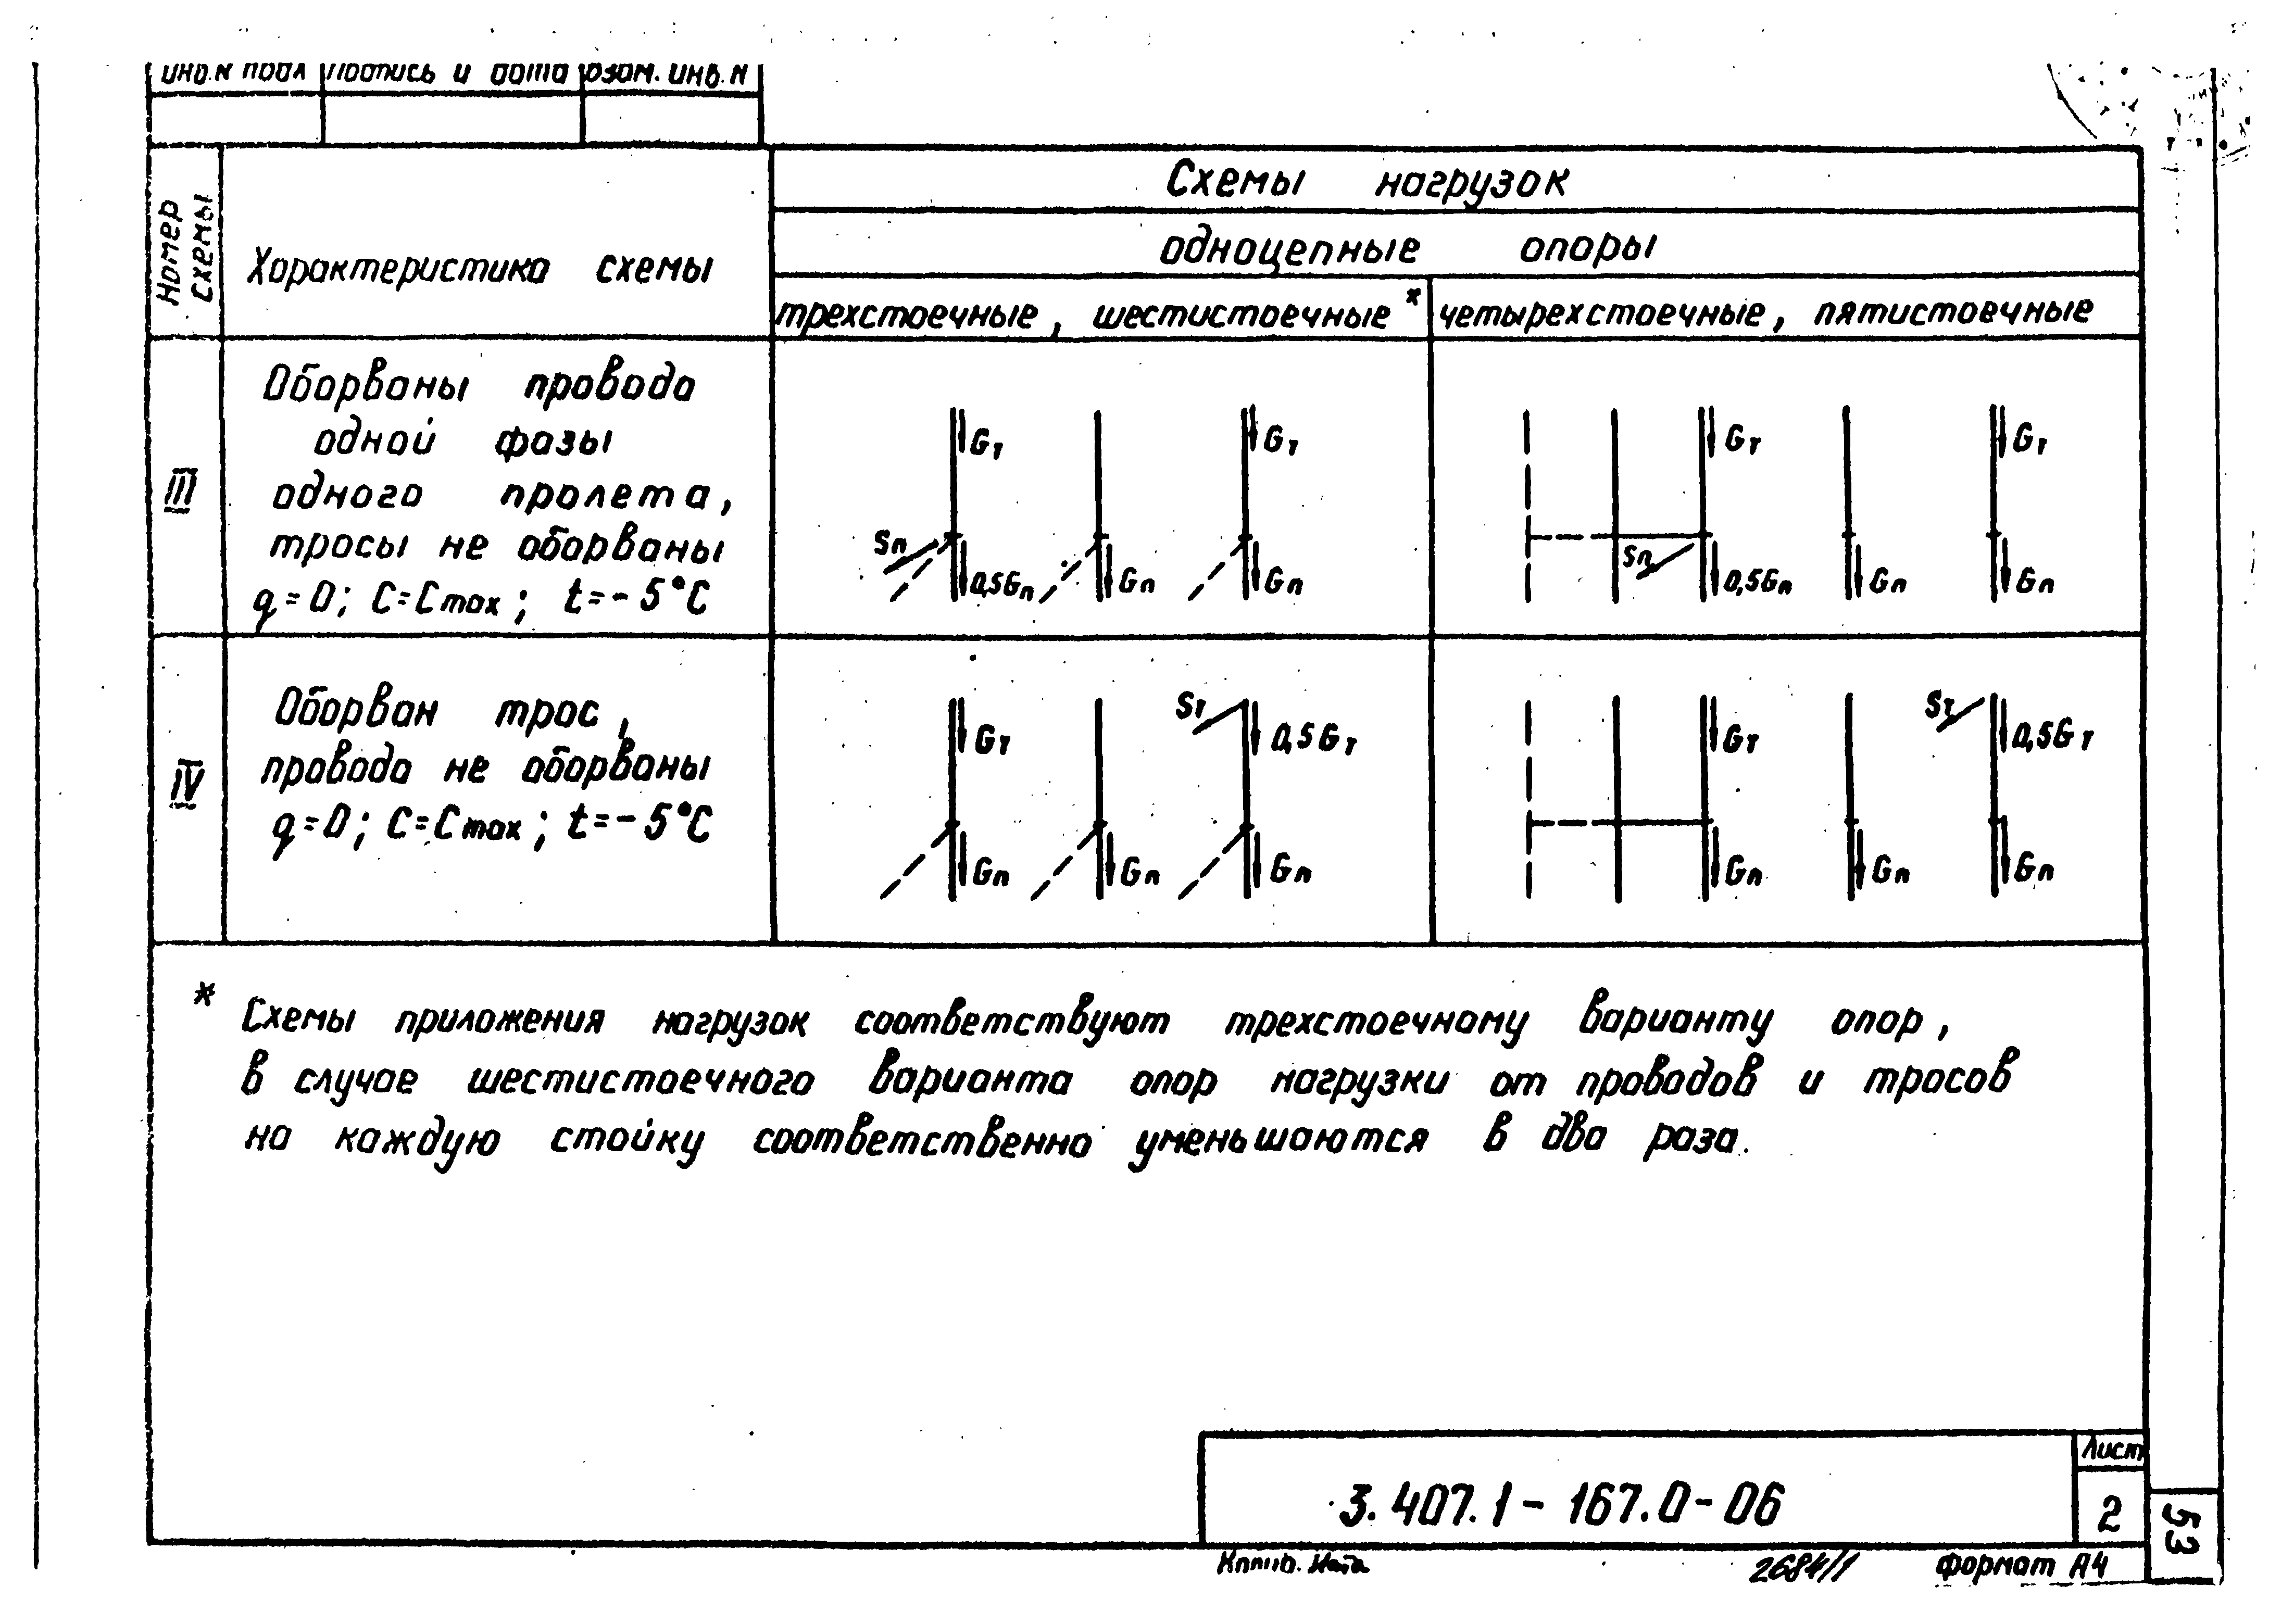 инв.N подл подпись и дата взам. инв. N
Номер схемы
Характеристика схемы
Схемы нагрузок
одноцепные опоры
трехстоечные, шестистоечные*
четырехстоечные, пятистоечные
III
Оборваны провода
одной фазы
одного пролета,
тросы не оборваны
q=0; C=Cmax; t=-5°C
Gт Gт
Sп 0,5Gп Gп Gп
Gт Gт
Sп 0,5Gп Gп Gп
IV
Оборван трос,
провода не оборваны
q=0; C=Cmax; t=-5°C
Gт Sт 0,5Gт
Gп Gп Gп
Gт Sт 0,5Gт
Gп Gп Gп
* Схемы приложения нагрузок соответствуют трехстоечному варианту опор,
в случае шестистоечного варианта опор нагрузки от проводов и тросов
на каждую стойку соответственно уменьшаются в два раза.
3.407.1-167.0-06
Лист
2
53
2684/1
формат А4